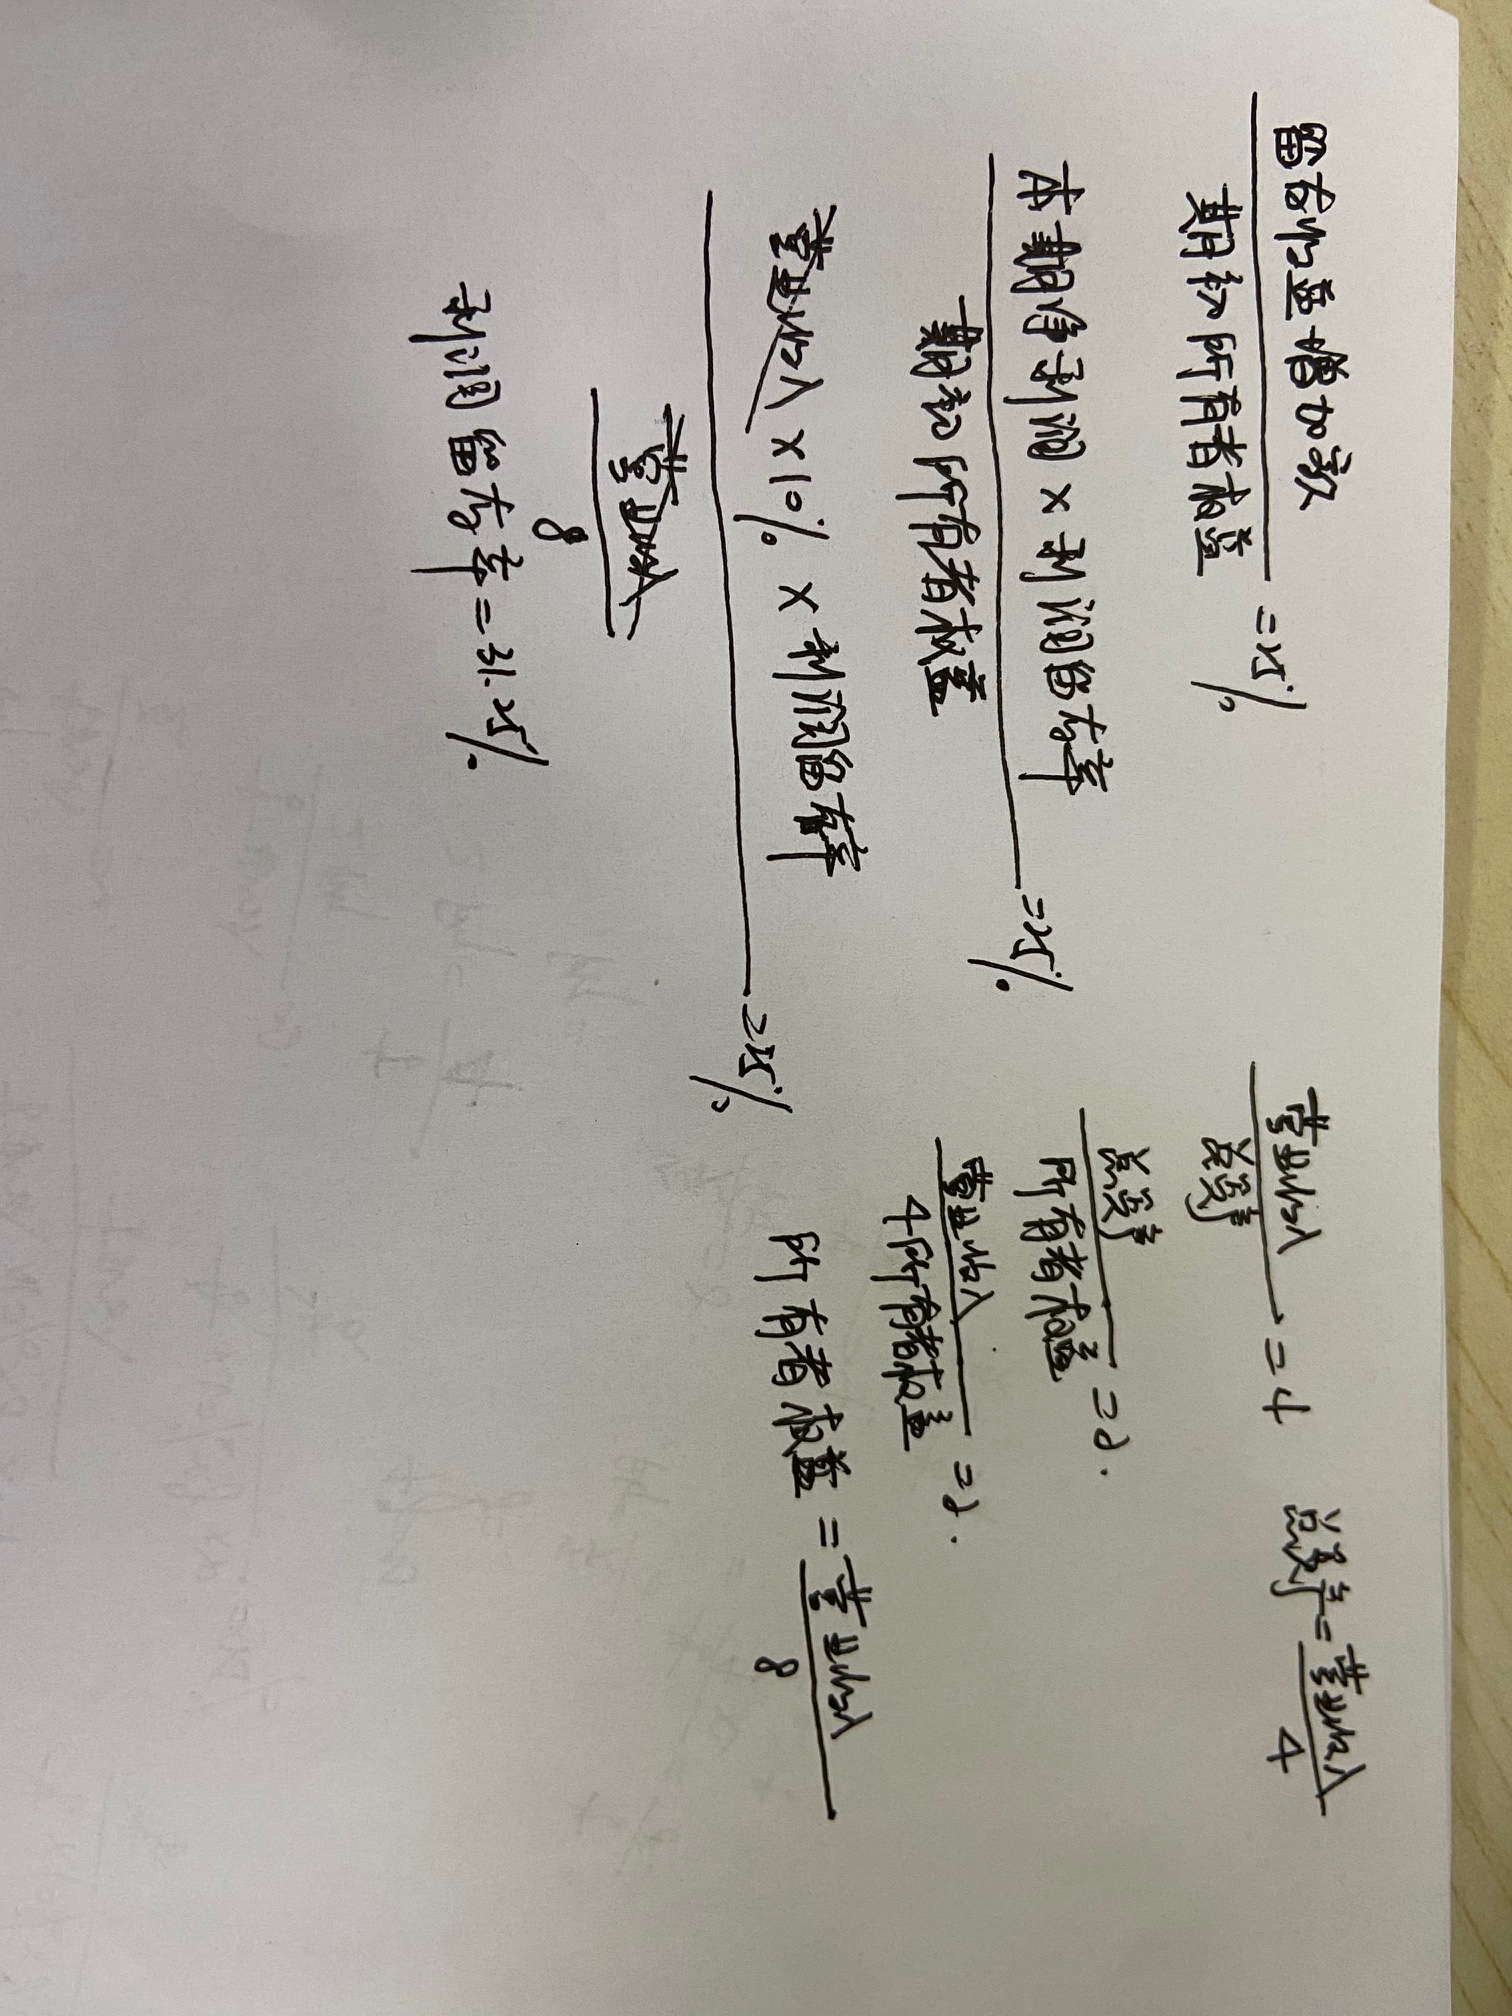 留存收益增加额
期初所有者权益
=25%
本期净利润×利润留存率
期初所有者权益
=25%
营业收入×10%×利润留存率
营业收入
8
=25%
利润留存率=31.25%
营业收入
总资产
=4
总资产=营业收入
4
总资产
所有者权益
=2.
营业收入
4所有者权益
=2.
所有者权益=营业收入
8